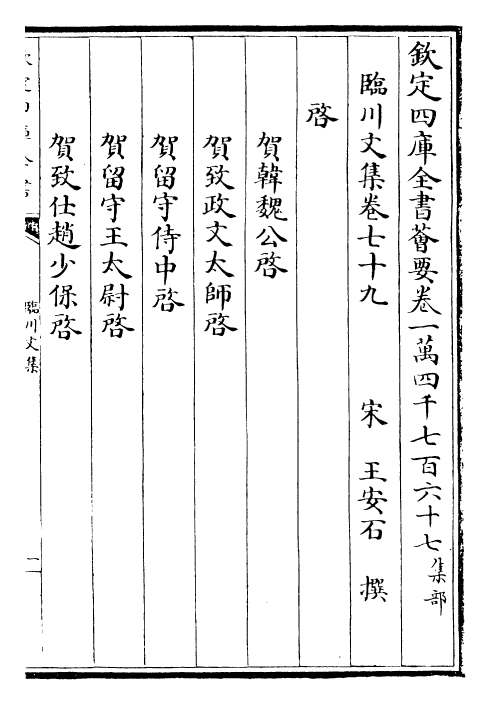 欽定四庫全書薈要卷一萬四千七百六十七集部
臨川文集卷七十九 宋 王安石 撰
啓
賀韓魏公啓
賀致政文太師啓
賀留守侍中啓
賀留守王太尉啓
賀致仕趙少保啓
臨川文集
一